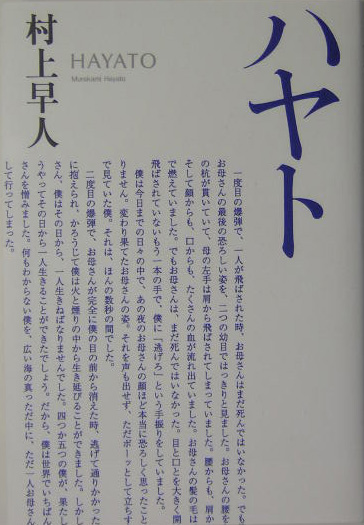 ハヤト
村上早人
HAYATO
Murakami Hayato
一度目の爆弾で、一人が飛ばされた時、お母さんはまだ死んではいなかった。でも
お母さんの最後の恐ろしい姿を、二つの幼目ではっきりと見ました。お母さんの腰を
の杭が貫いていて、母の左手は肩から飛ばされてしまっていました。腰からも、肩か
そして顔からも、口からも、たくさんの血が流れ出ていました。お母さんの髪の毛は
で燃えていました。でもお母さんは、まだ死んではいなかった。目と口とを大きく開
飛ばされていないもう一本の手で、僕に「逃げろ」という手振りをしていました。
僕は今日までの日々の中で、あの夜のお母さんの顔ほど本当に恐ろしく思ったこと
りません。変わり果てたお母さんの姿。それを声も出せず、ただボーッとして立ちす
で見ていた僕。それは、ほんの数秒の間でした。
二度目の爆弾で、お母さんが完全に僕の目の前から消えた時、逃げて通りかかった
に抱えられ、かろうじて僕は火と煙りの中から生き延びることができました。しかし
さん、僕はその日から、一人生きねばなりませんでした。四つか五つの僕が、果たし
うやってその日から一人生きることができたでしょう。だから、僕は世界でいちばん
さんを憎みました。何もわからない僕を、広い海の真っただ中に、ただ一人お母さん
して行ってしまった。